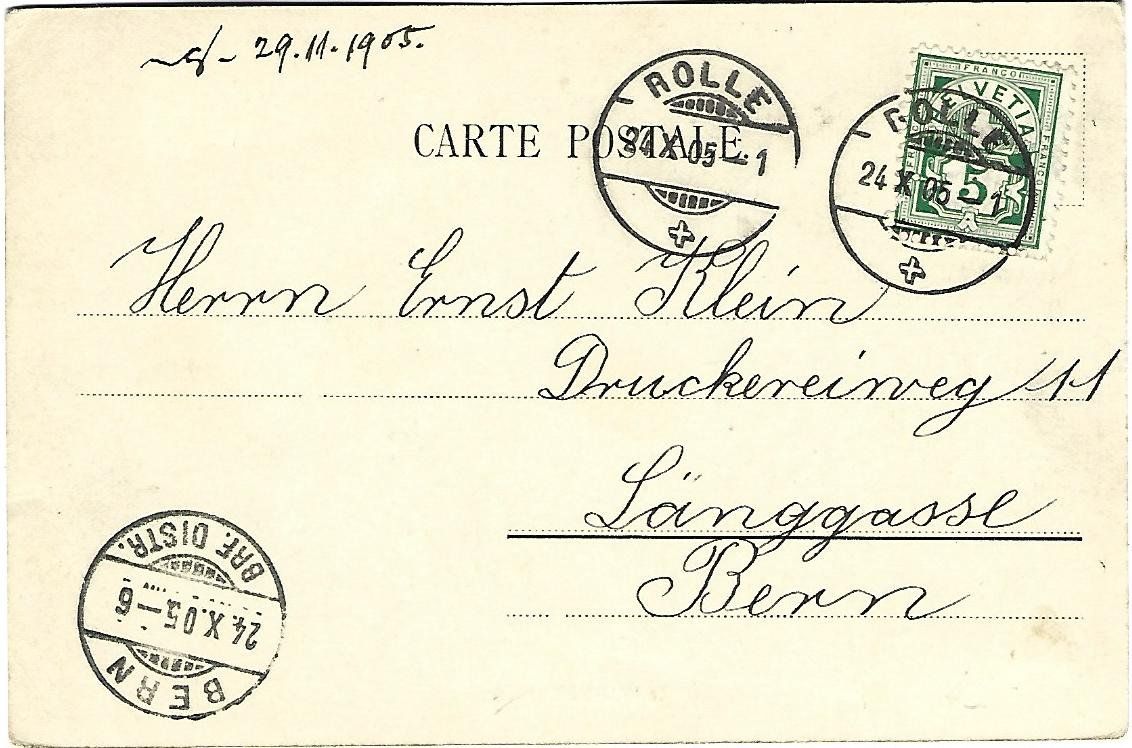 29.11.1905.
CARTE POSTALE.
ROLLE
24 X 05 – 1
ROLLE
24 X 05 – 1
FRANCO
HELVETIA
FRANCO
FRANCO
5
Herrn Ernst Klein
Druckereiweg 11
Länggasse
Bern
BERN
24.X.05–6
BRF. DISTR.